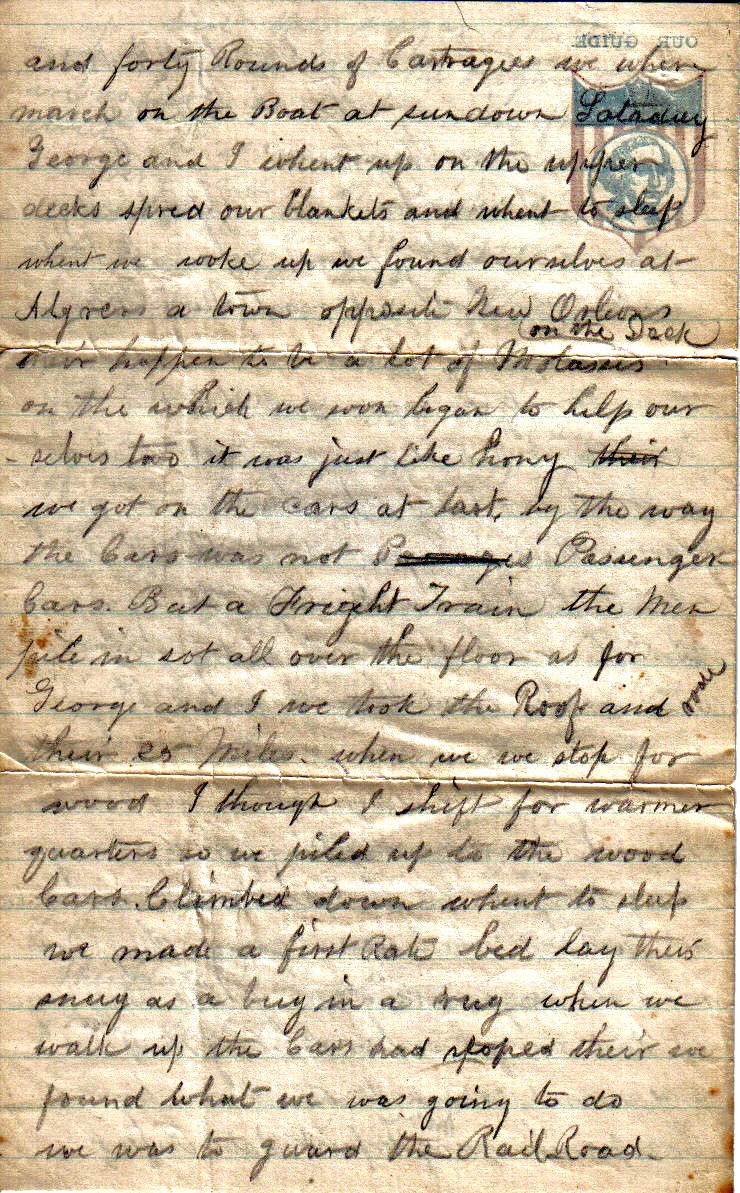 OUR GUIDE.
and forty Rounds of Cartragies we where
march on the Boat at sundown Sataday
George and I whent up on the upper
decks spred our blankets and whent to sleep
whent we woke up we found ourselves at
Algrers a town opposite New Orleans
(on the Dock)
happen to be a lot of Molasses
on the which we soon began to help our
-selves two it was just like hony their
we got on the cars at last, by the way
the Cars was not Passenger
Cars. But a Frieght Train the Men
pile in sot all over the floor as for
George and I we took the Roof and rode
their 25 Miles. when we we stop for
wood I though I shift for warmer
quarters so we piled up to the wood
Cars. Climbed down whent to sleep
we made a first Rate bed lay their
snug as a bug in a rug when we
walk up the Cars had stoped their we
found what we was going to do
we was to guard the Rail Road.